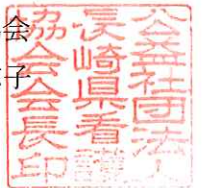 会
子
公益社団法人
長崎県看護
協会会長印